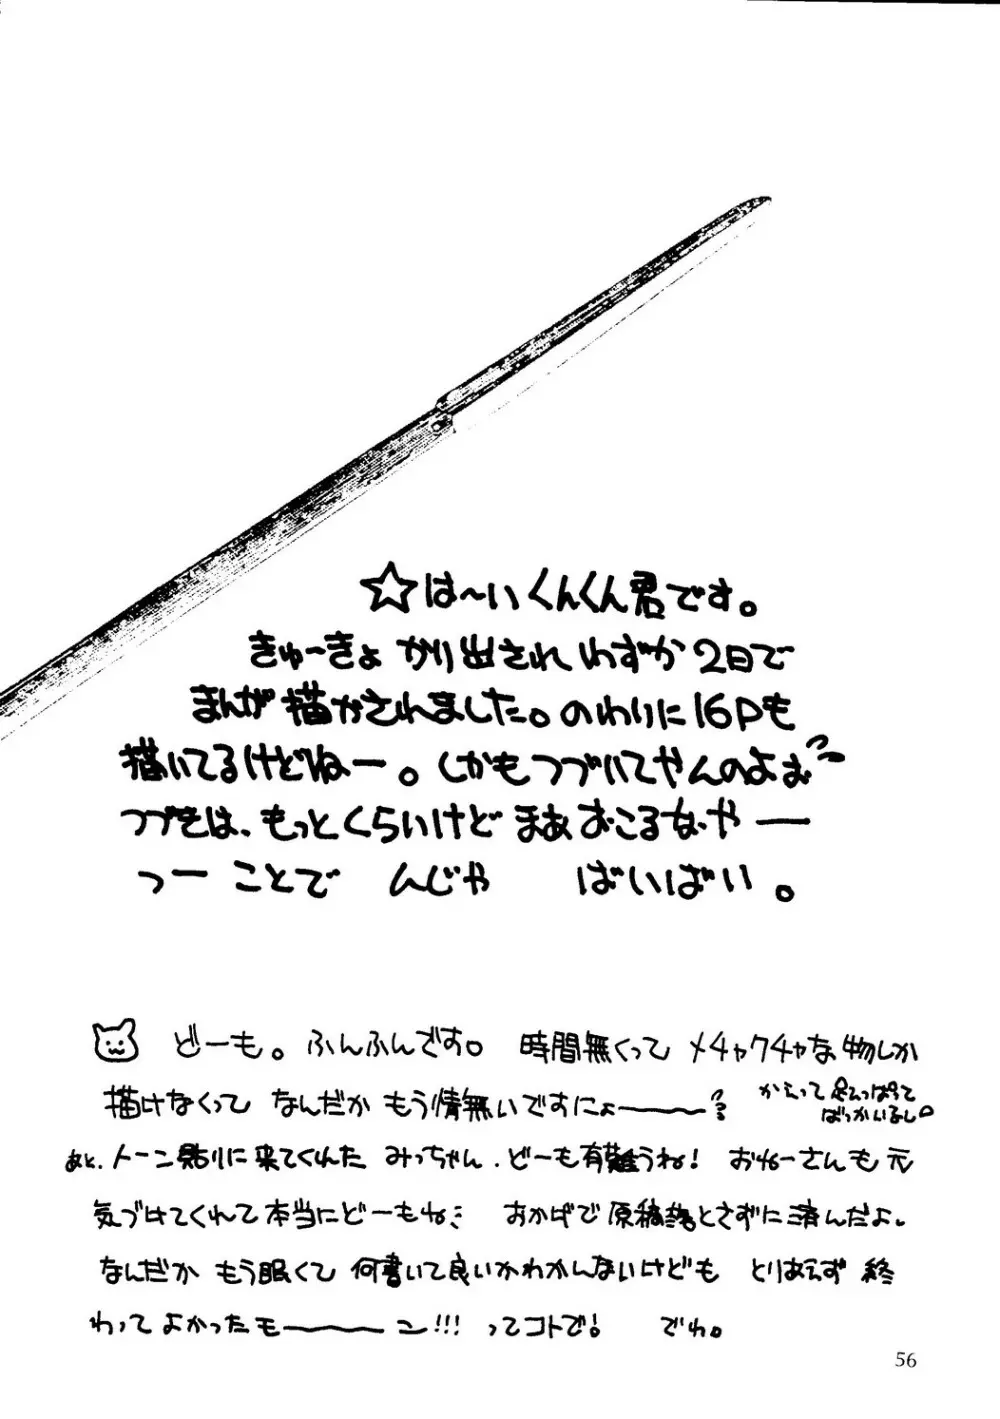 ☆は〜いくんくん君です。
きゅーきょ かり出されわずか2日で
まんが描かされました。のわりに16Pも
描いてるけどねー。しかもつづいてやんのよお
つづきは、もっとくらいけど まあおこるなやー
つー ことで んじゃ ばいばい。
どーも。ふんふんです。 時間無くって メチャクチャな物しか
描けなくって なんだか もう情無いですにょ〜〜〜
かえって足ひっぱって
ばっかいるし。
あと、トーン貼りに来てくれた みっちゃん、どーも有難うね! おねーさんも元
気づけてくれて本当にどーもね おかげで原稿落とさずに済んだよ。
なんだか もう眠くて 何書いて良いかわかんないけども とりあえず 終
わって よかったモ〜〜〜ン!!! ってコトで! でわ。
56